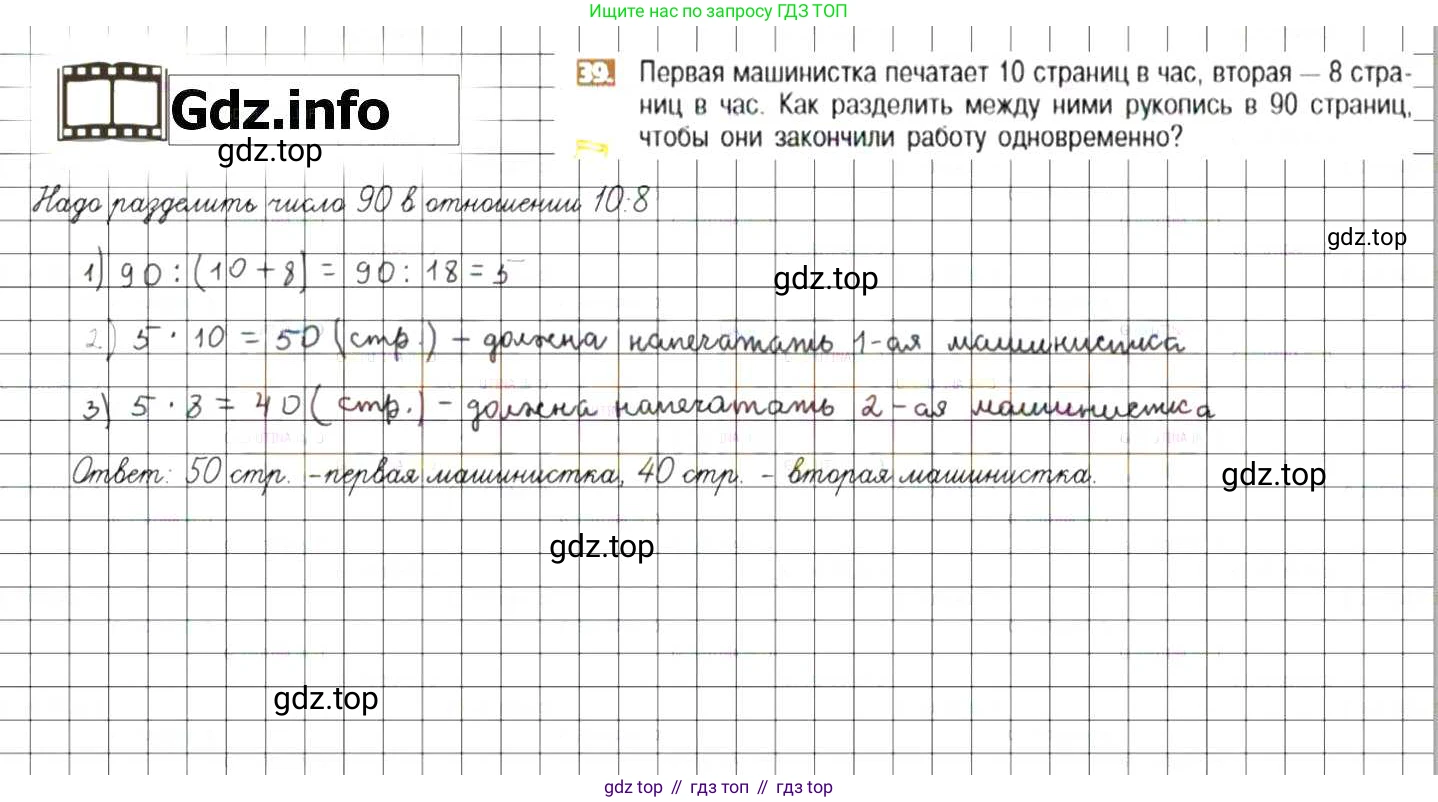 Ищите нас по запросу ГДЗ ТОП
Gdz.info
gdz.top
39. Первая машинистка печатает 10 страниц в час, вторая — 8 стра-
ниц в час. Как разделить между ними рукопись в 90 страниц,
чтобы они закончили работу одновременно?
Надо разделить число 90 в отношении 10:8
gdz.top
1) 90 : (10 + 8) = 90 : 18 = 5
gdz.top
2) 5 · 10 = 50 (стр.) - должна напечатать 1-ая машинистка
3) 5 · 8 = 40 (стр.) - должна напечатать 2-ая машинистка
Ответ: 50 стр. - первая машинистка, 40 стр. - вторая машинистка.
gdz.top
gdz.top
gdz.top
gdz top // гдз топ // гдз top